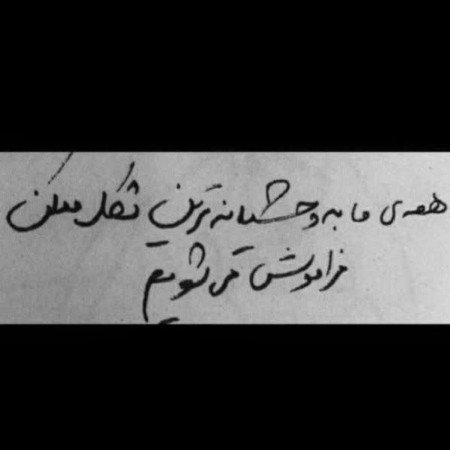 همه‌ی ما به وحشیانه‌ترین شکل ممکن
فراموش می‌شویم